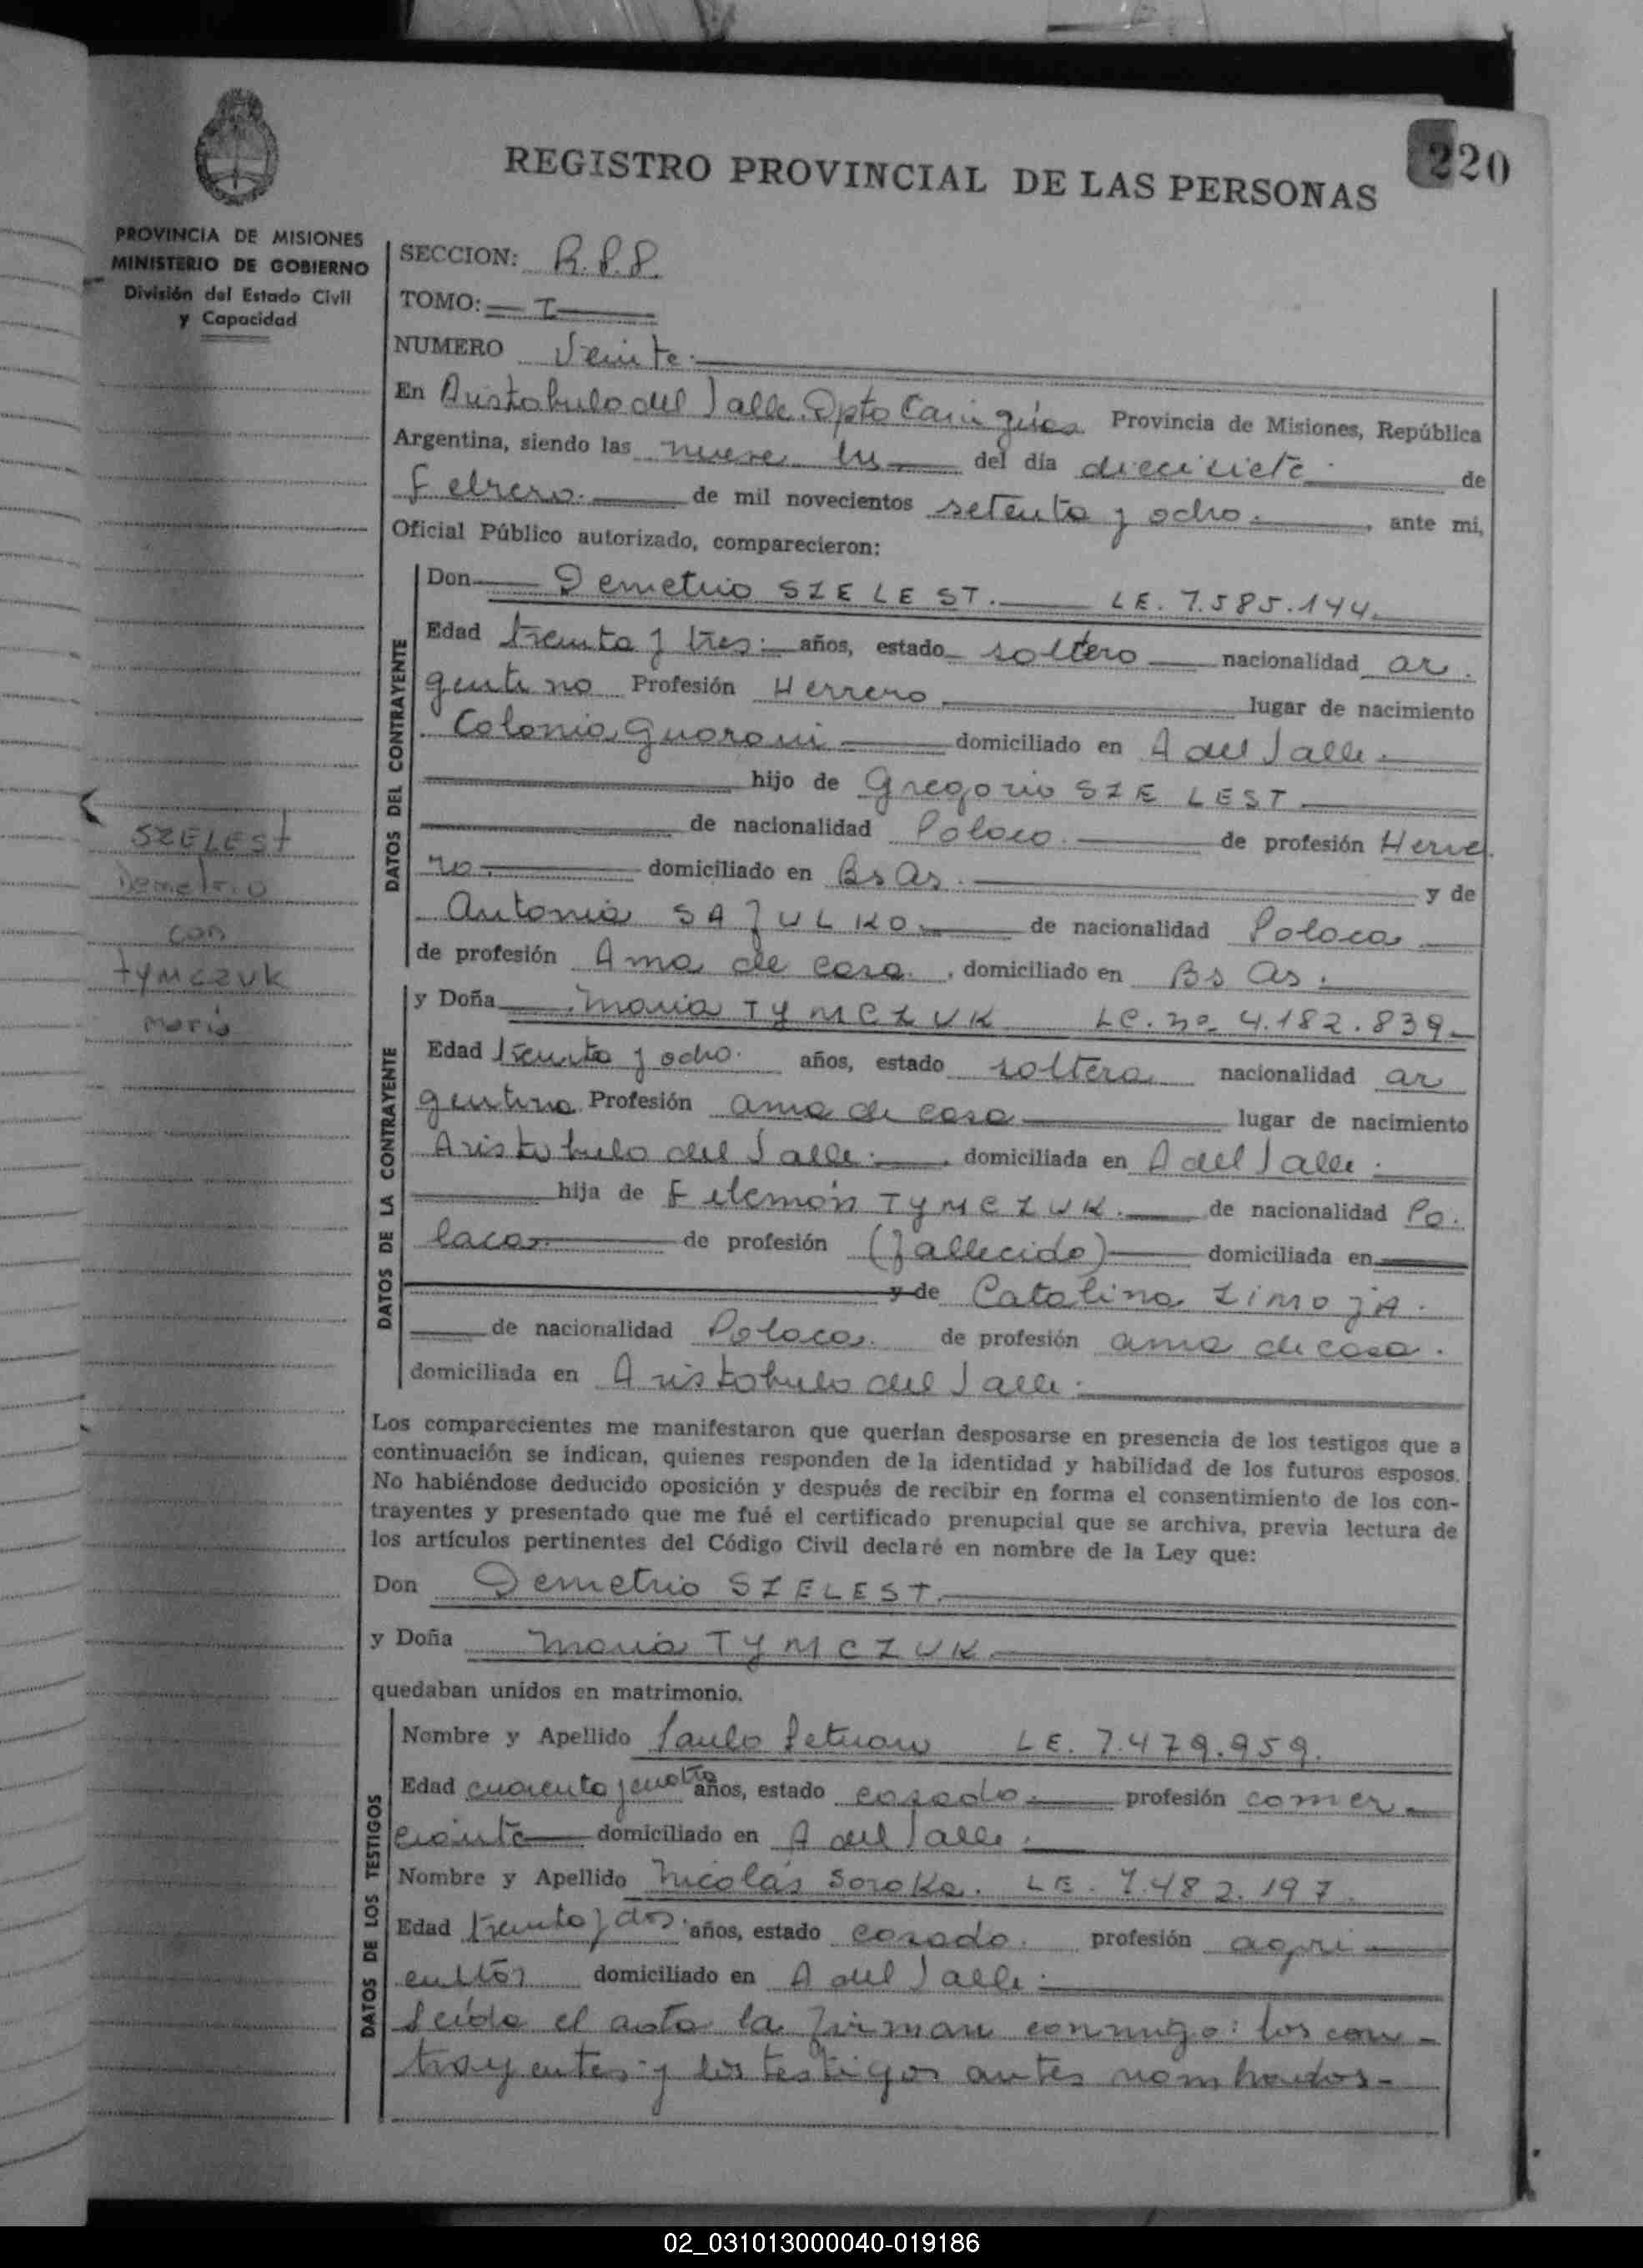 220
REGISTRO PROVINCIAL DE LAS PERSONAS
PROVINCIA DE MISIONES
MINISTERIO DE GOBIERNO
División del Estado Civil
y Capacidad
SZELEST
Demetrio
con
TYMCZUK
María
SECCION: R.P.P.
TOMO: I
NUMERO Veinte.
En Aristobulo del Valle. Dpto Cainguás Provincia de Misiones, República
Argentina, siendo las nueve hs del día diecisiete. de
Febrero. de mil novecientos setenta y ocho. , ante mi,
Oficial Público autorizado, comparecieron:
DATOS DEL CONTRAYENTE
Don Demetrio SZELEST. LE. 7.585.144.
Edad treinta y tres. años, estado soltero nacionalidad ar.
gentino Profesión Herrero lugar de nacimiento
Colonia Guarani domiciliado en A del Valle.
hijo de Gregorio SZELEST
de nacionalidad Polaco. de profesión Herre.
ro. domiciliado en Bs As. y de
Antonia SAJULKO de nacionalidad Polaca
de profesión Ama de casa. , domiciliado en Bs As.
DATOS DE LA CONTRAYENTE
y Doña María TYMCZUK LC. nº 4.182.839
Edad treinta y ocho. años, estado soltera nacionalidad ar
gentina Profesión ama de casa lugar de nacimiento
Aristobulo del Valle. , domiciliada en A del Valle.
hija de Filemón TYMCZUK. de nacionalidad Po.
laca de profesión (fallecido) domiciliada en
y de Catalina ZIMOJA.
de nacionalidad Polaca. de profesión ama de casa.
domiciliada en Aristobulo del Valle.
Los comparecientes me manifestaron que querían desposarse en presencia de los testigos que a
continuación se indican, quienes responden de la identidad y habilidad de los futuros esposos.
No habiéndose deducido oposición y después de recibir en forma el consentimiento de los con-
trayentes y presentado que me fué el certificado prenupcial que se archiva, previa lectura de
los artículos pertinentes del Código Civil declaré en nombre de la Ley que:
Don Demetrio SZELEST.
y Doña María TYMCZUK
quedaban unidos en matrimonio.
DATOS DE LOS TESTIGOS
Nombre y Apellido Paulo Petruow LE. 7.479.959.
Edad cuarenta y cuatro años, estado casado. profesión comer
ciante domiciliado en A del Valle.
Nombre y Apellido Nicolás Soroka. LE. 7.482.197.
Edad treinta y dos. años, estado casado. profesión agri
cultor domiciliado en A del Valle.
Leída el acta la firman conmigo: los con-
trayentes y los testigos antes nombrados-
02_031013000040-019186